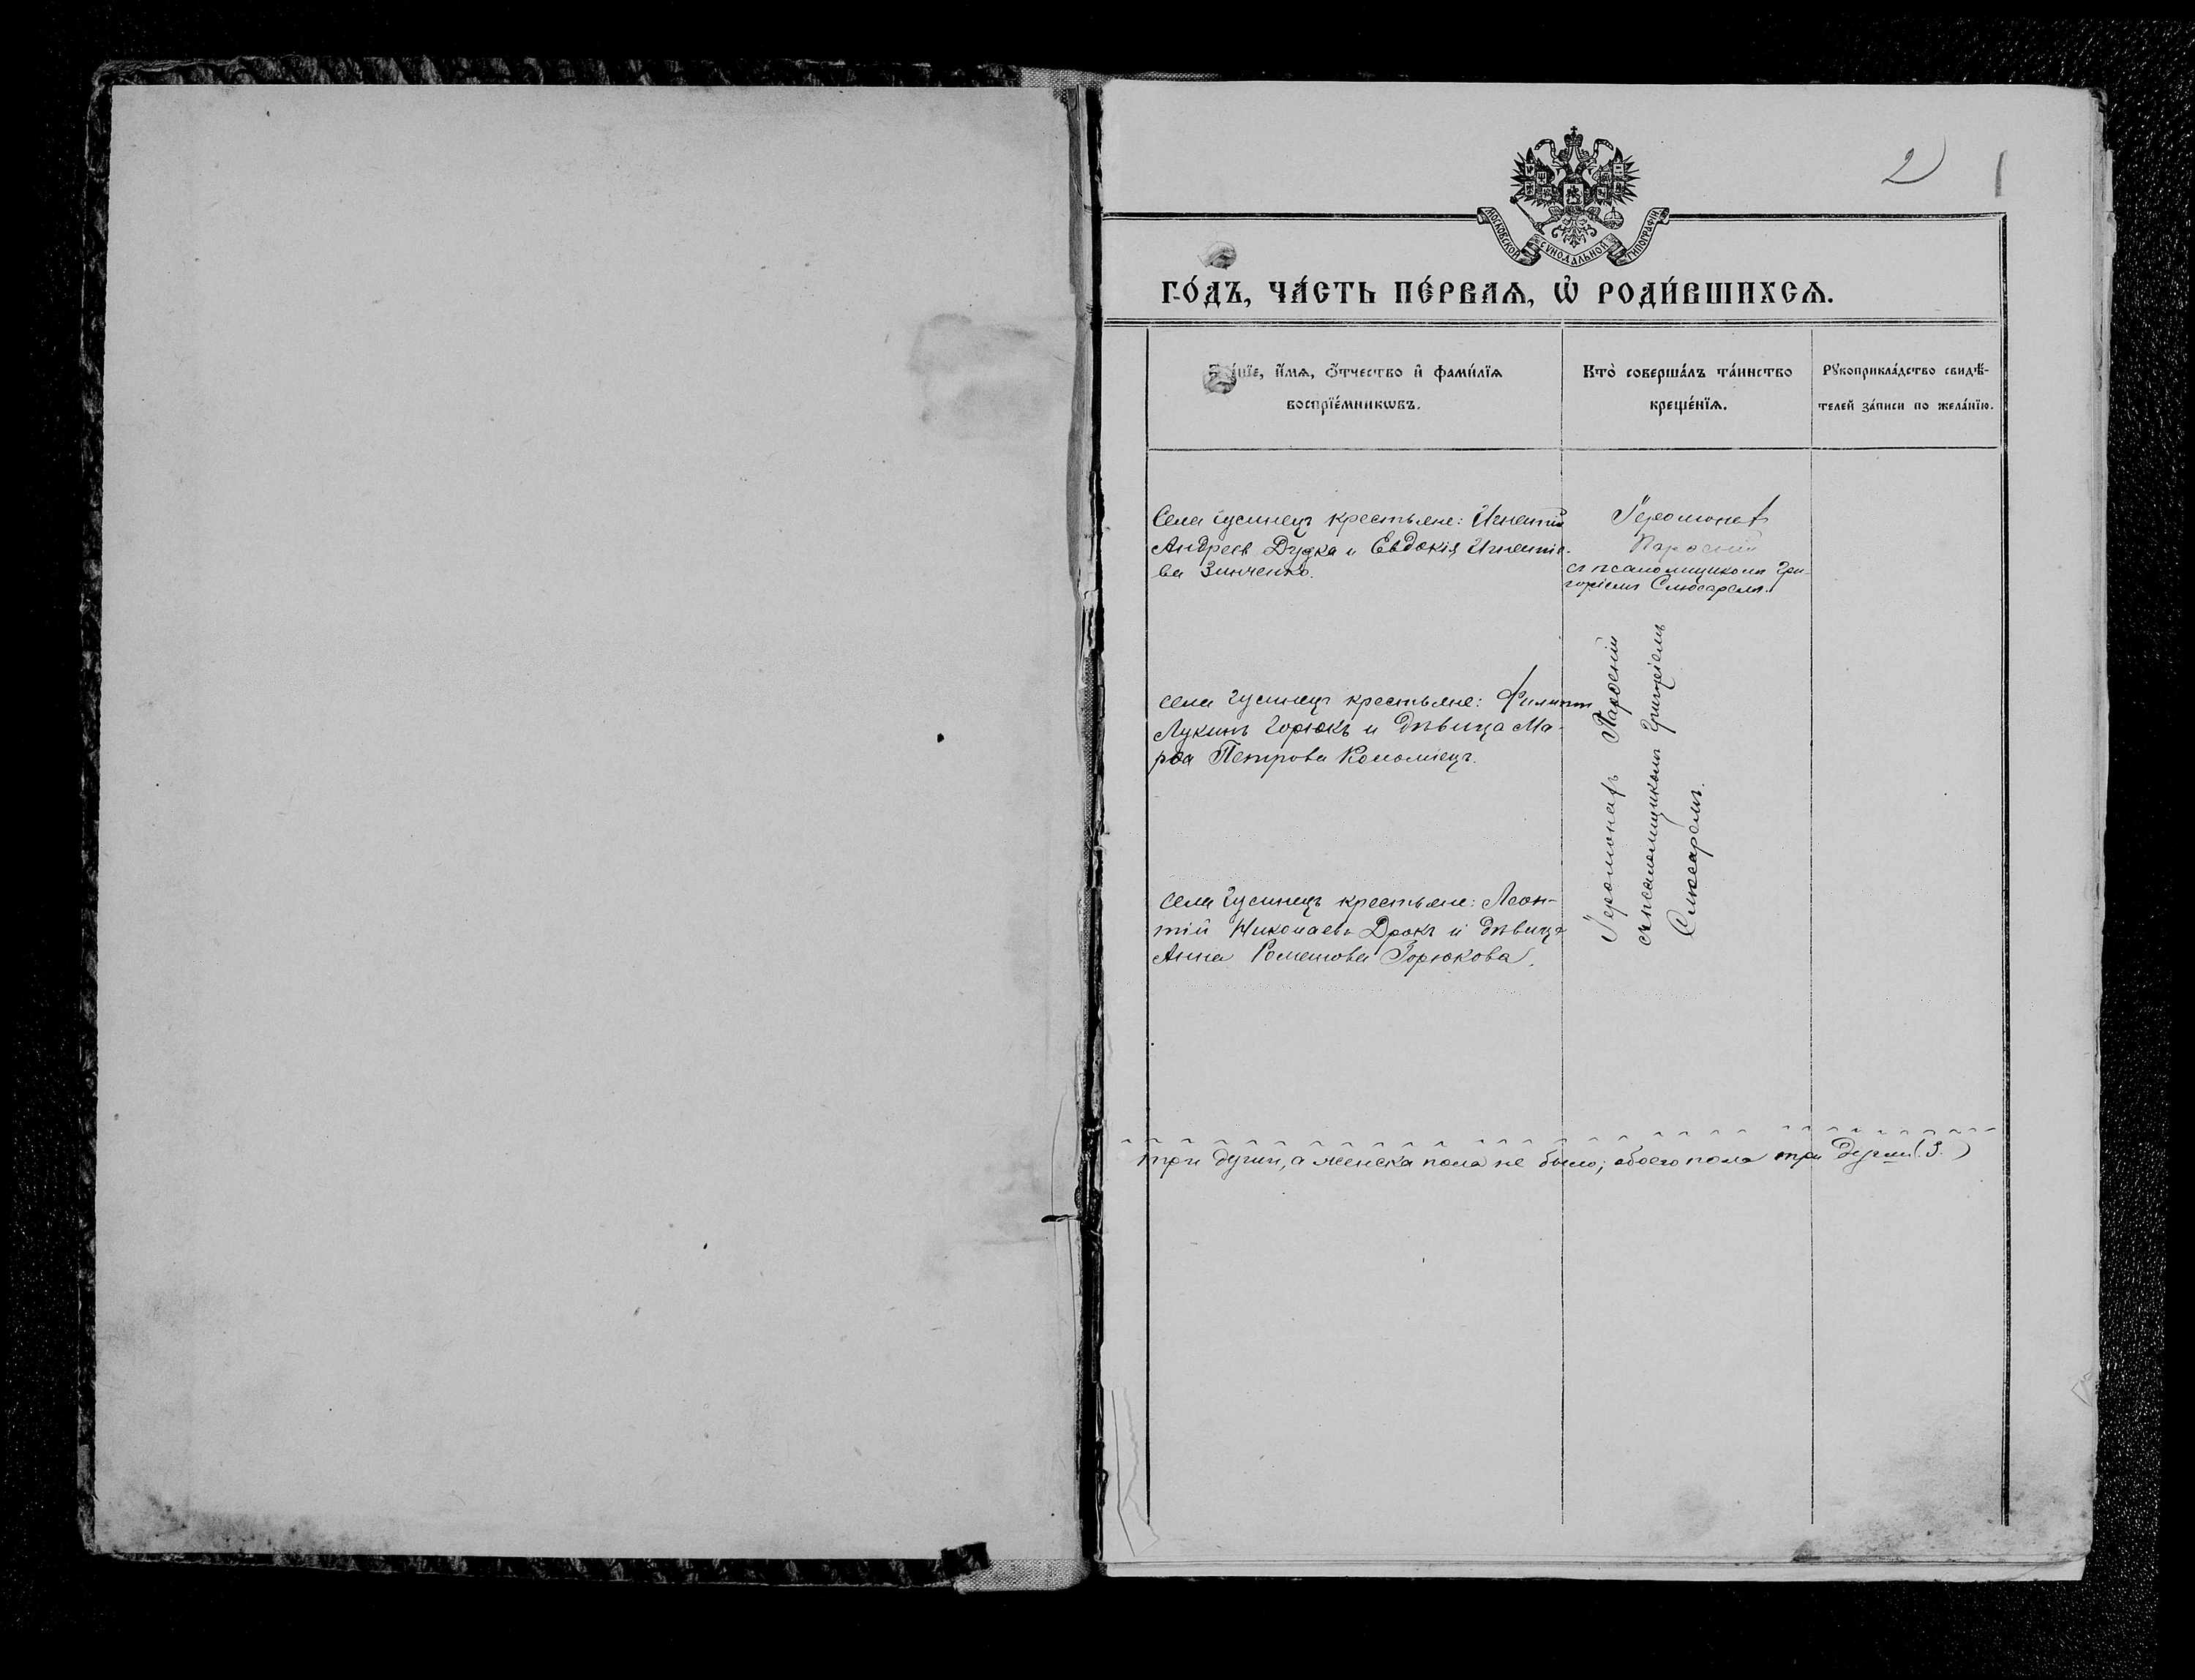 2) 1
МОСКОВСКОЙ СѴНОДАЛЬНОЙ ТИПОГРАФІИ
ГО́ДЪ, ЧА́СТЬ ПЕ́РВАѦ, Ѽ РОДИ́ВШИХСѦ.
Зва́нїе, и҆́мѧ, ѻ҆́тчество и҆ фами́лїѧ
воспрїе́мникѡвъ.
Кто̀ соверша́лъ та́инство
креще́нїѧ.
Рꙋкоприкла́дство свидѣ́-
телей за́писи по жела́нїю.
Села Гусинецъ крестьяне: Игнатій
Андреев Дудка и Евдокія Игнатіе-
ва Зинченко.
Іеромонах
Парѳеній
съ псаломщикомъ Гри-
горіемъ Слюсаремъ.
села Гусинецъ крестьяне: Филиппъ
Лукинъ Горюкъ и дѣвица Ма-
рѳа Петрова Коломіецъ.
Іеромонахъ Парѳеній
съ псаломщикомъ Григоріемъ
Слюсаремъ.
села Гусинецъ крестьяне: Леон-
тій Николаевъ Дрокъ и дѣвица
Анна Романова Горюкова.
три души, а женска пола не было; обоего пола три души (3.)